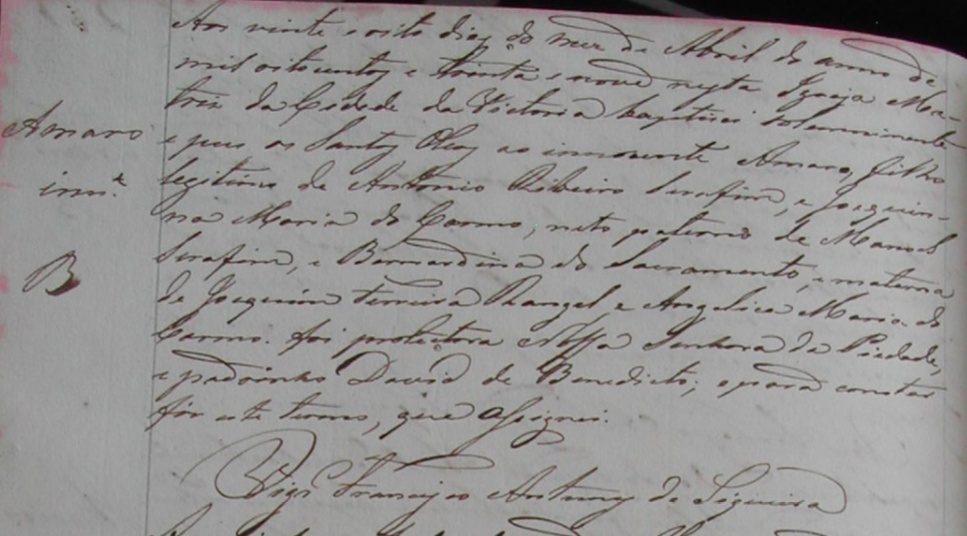 Aos vinte e oito dias do mez de Abril do anno de
mil oitocentos e trinta e nove nesta Igreja Ma-
triz da Cidade da Victoria baptisei solemnemente
Amaro
e puz os Santos Oleos ao innocente Amaro, filho
inn.e
legitimo de Antonio Ribeiro Serafim, e Joaquin-
na Maria do Carmo, neto paterno de Manoel
B
Serafim, e Bernardina do Sacramento, e materno
de Joaquim Ferreira Rangel, e Angelica Maria do
Carmo. Foi protectora Nossa Senhora da Piedade,
e padrinho David de Benedicto; e para constar
fiz este termo, que assignei.
Vigr.o Francisco Antunes de Siqueira